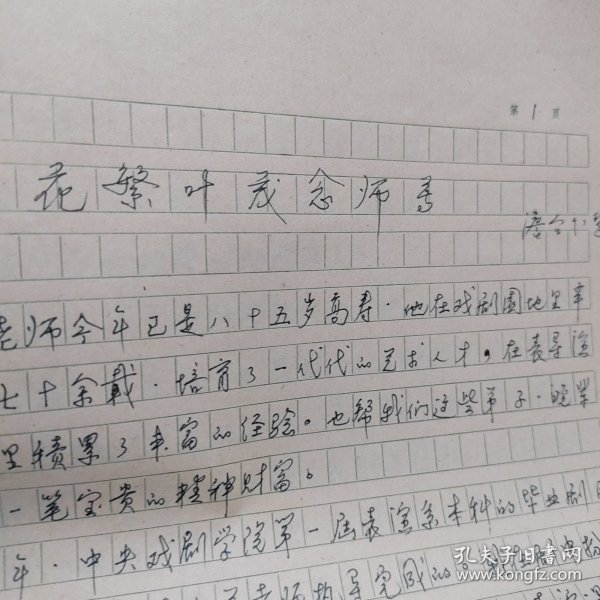 第 1 页
花繁叶茂念师寿
老师今年已是八十五岁高寿．他在戏剧园地里辛
七十余载．培育了一代代的艺术人才。在表导演
里积累了丰富的经验。也帮我们这些弟子．
一笔宝贵的精神财富。
年．中央戏剧学院第一届表演系本科的毕业剧目
老师指导完成的
孔夫子旧书网
www.kongfz.com